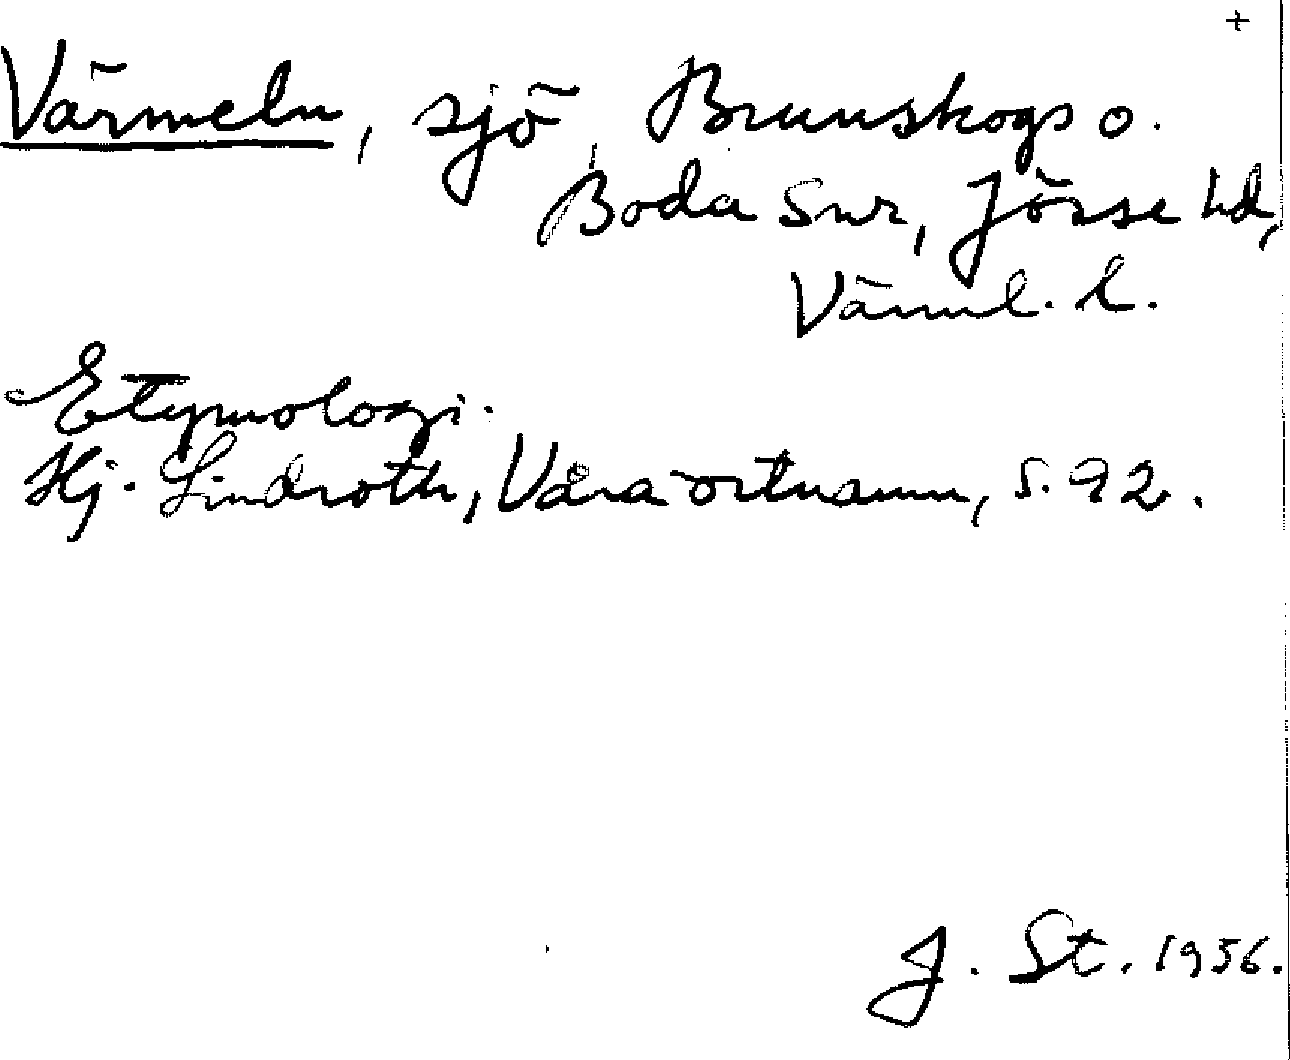 +
Värmeln, sjö, Brunskogs o.
Boda snr, Jösse hd,
Värml. l.
Etymologi.
Hj. Lindroth, Våra ortnamn, s. 92.
J. St. 1956.